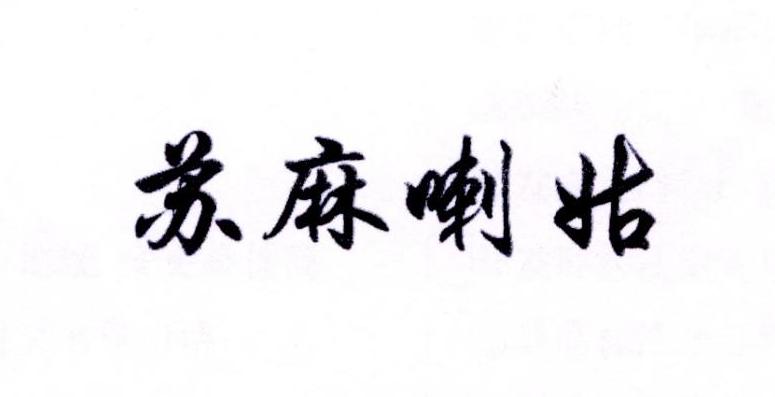 苏麻喇姑